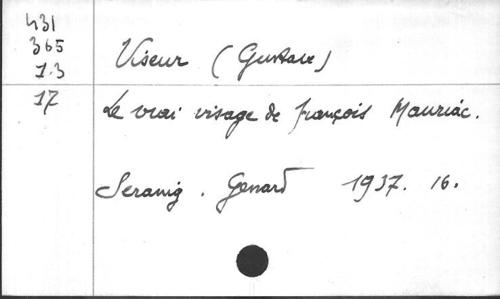 431
365
13
17
Viseur (Gustave)
Le vrai visage de françois Mauriac.
Seraing. Genard 1937. 16.